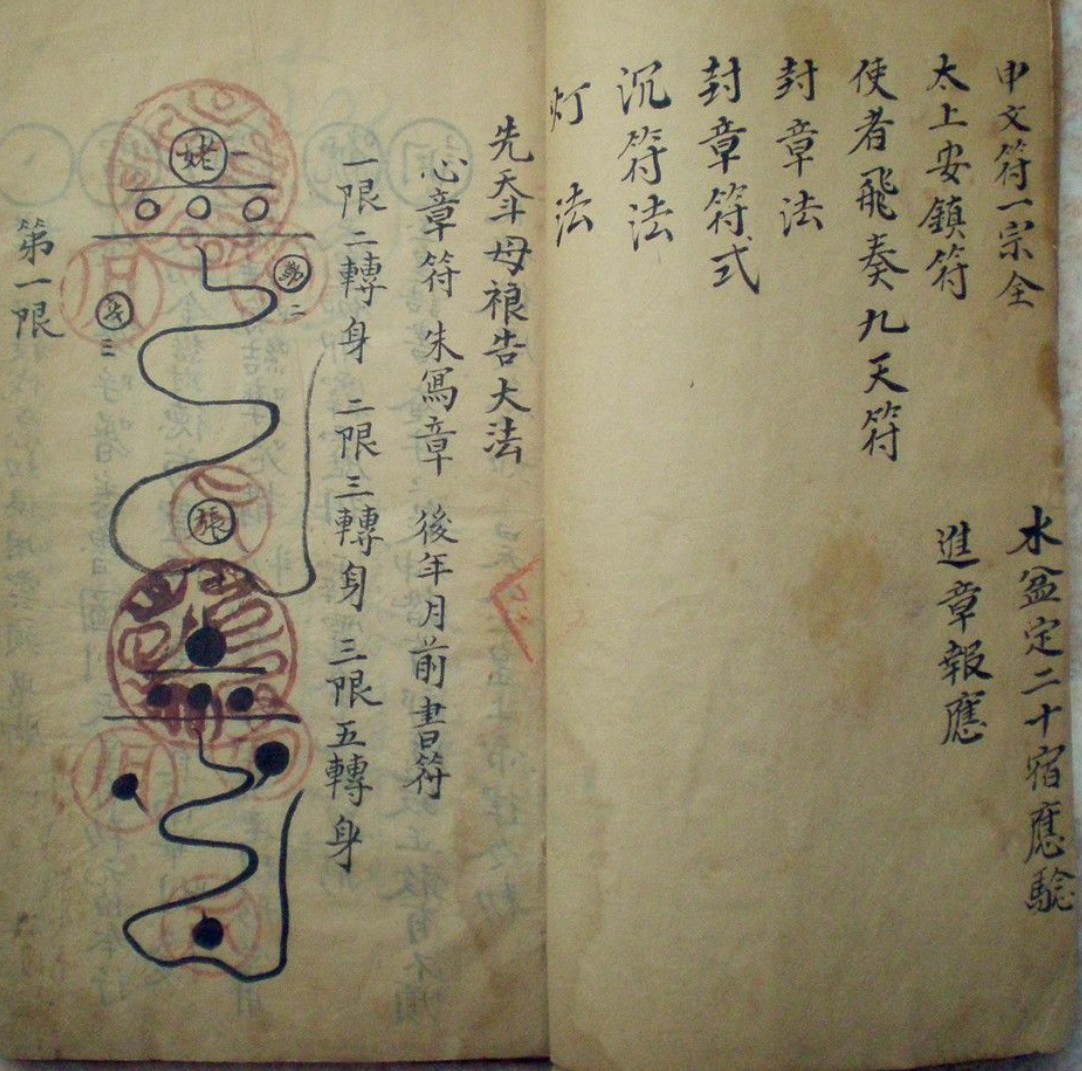 申文符一宗全
水盆定二十宿應驗
太上安鎮符
進章報應
使者飛奏九天符
封章法
封章符式
沉符法
灯法
先天斗母禳告大法
心章符 朱寫章 後年月前書符
一限二轉身 二限三轉身 三限五轉身
姥一
二
三
張
第一限